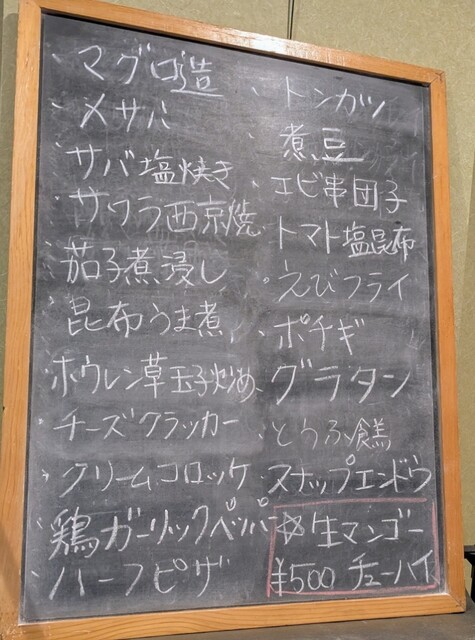 マグロ造
〆サバ
サバ塩焼き
サワラ西京焼
茄子煮浸し
昆布うま煮
ホウレン草玉子炒め
チーズクラッカー
クリームコロッケ
鶏ガーリックペッパー
ハーフピザ
トンカツ
煮豆
エビ串団子
トマト塩昆布
えびフライ
ポテギ
グラタン
とうふ
スナップエンドウ
☆生マンゴー
¥500 チューハイ